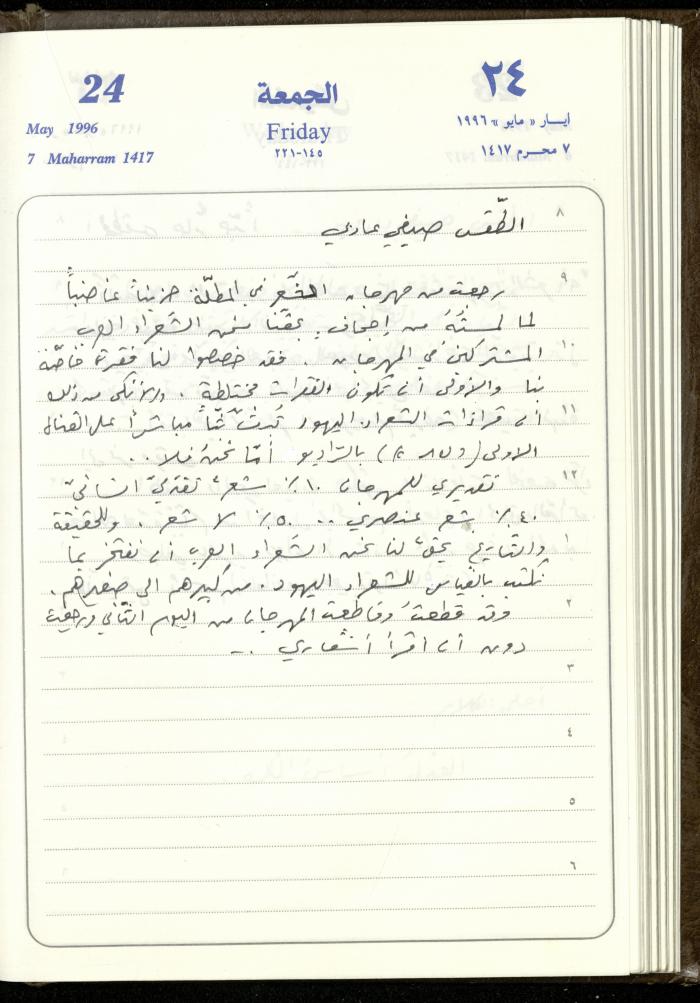 24
الجمعة
٢٤
May 1996
Friday
ايار « مايو » ١٩٩٦
7 Maharram 1417
٢٢١-١٤٥
٧ محرم ١٤١٧
٨
الطّقس صيفي عادي
٩
رجعت من مهرجان الشّعر في المطلّة حزيناً غاضباً
لما لمستُهُ من إجحاف بحقّنا نحن الشّعراء العرب
١٠
المشتركين في المهرجان . فقد خصصوا لنا فقرة خاصّة
بنا والأَولى أن تكون الفقرات مختلطة . والأنكى من ذلك
١١
أن قراءات الشعراء اليهود تُبثّ بثّاً مباشراً على القناة
الاولى ( ) بالرّاديو أمّا نحنُ فلا ..
١٢
تقديري للمهرجان ١٠٪ شعرٌ تقدّميّ انسانيّ
٤٠٪ شعر عنصري .. ٥٠٪ لا شعر . وللحقيقة
١
والتاريخ يحقّ لنا نحن الشّعراء العرب أن نفتخر بما
نكتب بالقياس للشعراء اليهود . من كبيرهم الى صغيرهم .
٢
وقد قطعتُ وقاطعت المهرجان من اليوم الثّاني ورجعت
دون أن اقرأ أشعاري . _
٣
٤
٥
٦